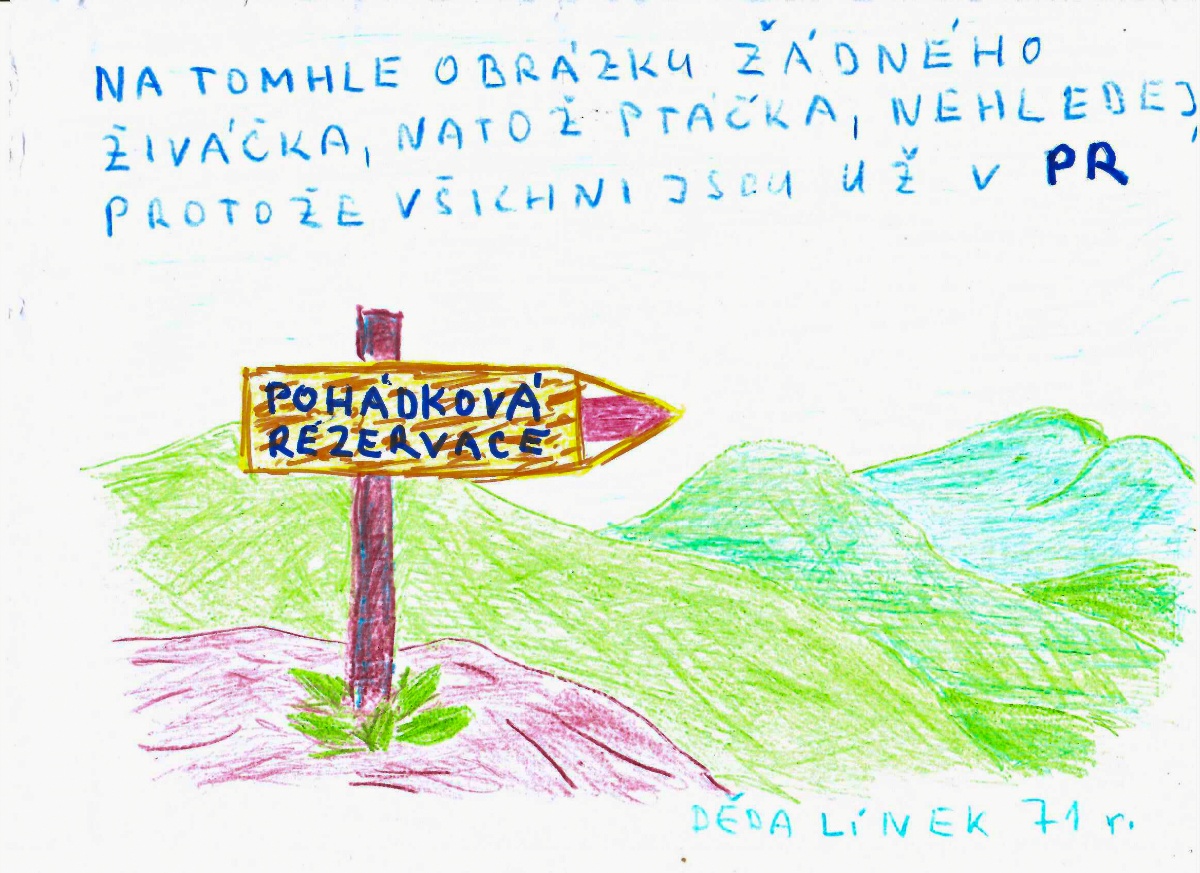 NA TOMHLE OBRÁZKU ŽÁDNÉHO
ŽIVÁČKA, NATOŽ PTÁČKA, NEHLEDEJ,
PROTOŽE VŠICHNI JSOU UŽ V PR
POHÁDKOVÁ
REZERVACE
DĚDA LÍNEK 71 r.